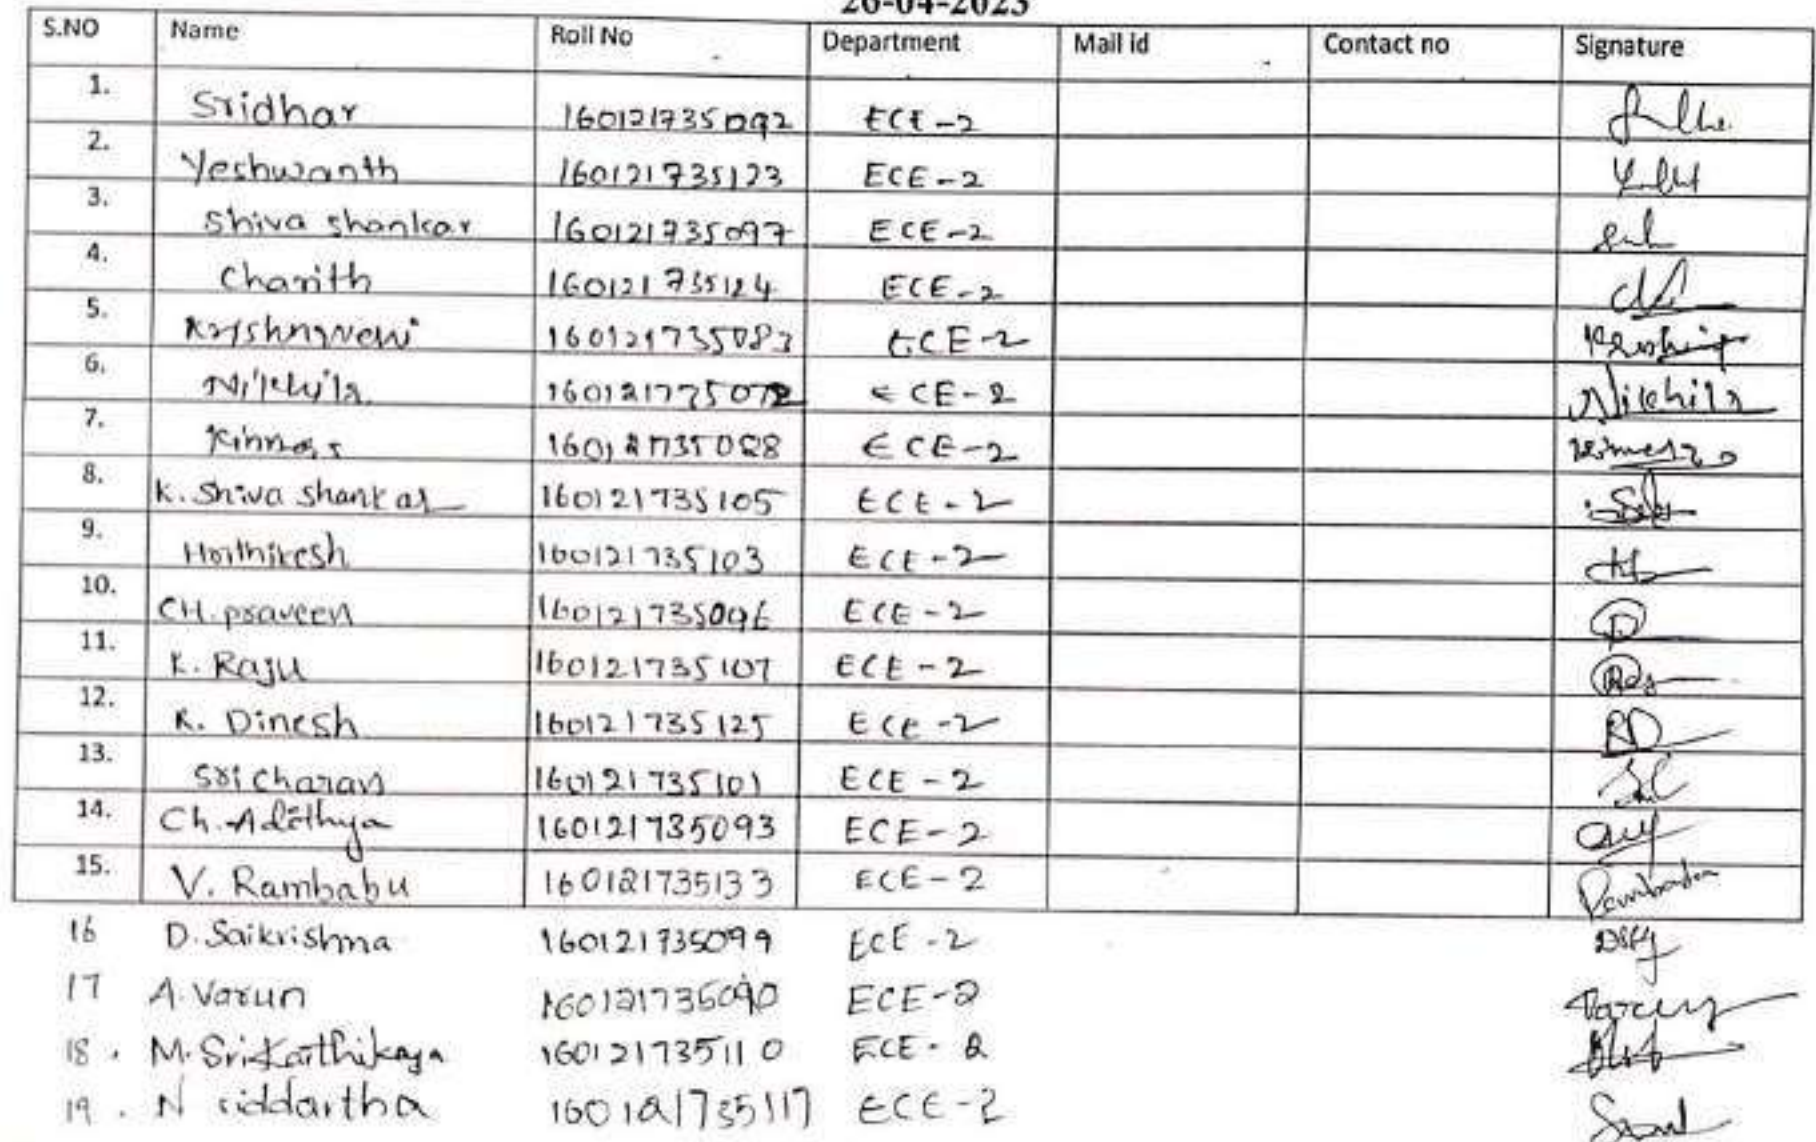 26-04-2023
S.NO Name Roll No Department Mail id Contact no Signature
1. Sridhar 160121735092 ECE-2
2. Yeshwanth 160121735123 ECE-2
3. Shiva shankar 160121735097 ECE-2
4. Charith 160121735124 ECE-2
5. Krishnaveni 160121735083 ECE-2
6. Nikhila ECE-2 Nikhila
7. ECE-2
8. K. Shiva Shankar 160121735105 ECE-2
9. Hrithikesh 160121735103 ECE-2
10. CH. praveen 160121735096 ECE-2
11. K. Raju 160121735107 ECE-2
12. R. Dinesh 160121735125 ECE-2
13. Sri charan 160121735101 ECE-2
14. Ch. Adithya 160121735093 ECE-2
15. V. Rambabu 160121735133 ECE-2 Rambabu
16 D. Saikrishna 160121735099 ECE-2
17 A. Varun 160121735090 ECE-2 Varun
18. M. Sri Karthikeya 160121735110 ECE-2
19. N siddartha 160121735117 ECE-2